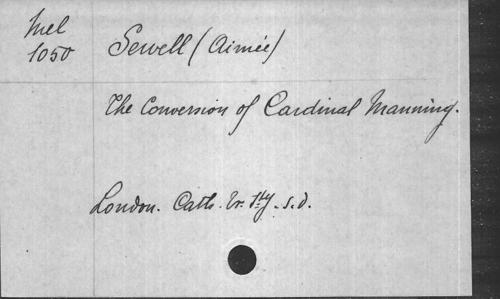 Mel
1050
Sewell (Aimée)
The Conversion of Cardinal Manning.
London. Cath. Tr. Sty. s.d.